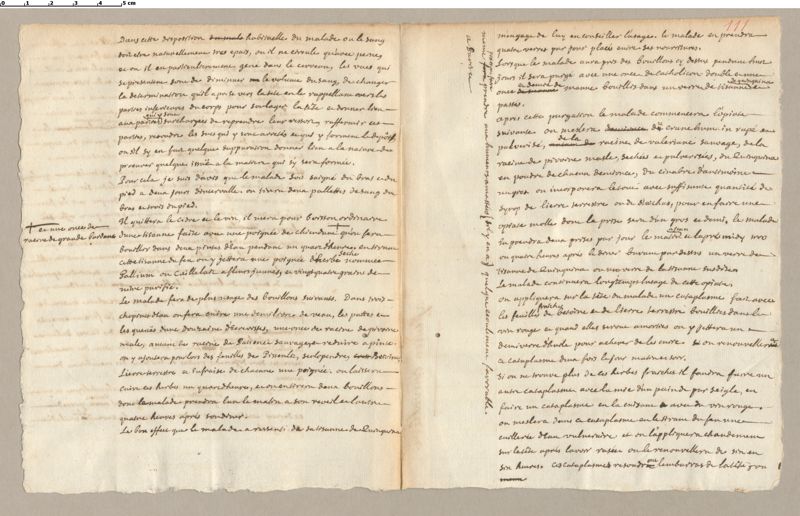 0 1 2 3 4 5 cm
Dans cette disposition habituelle du malade ou le sang
doit etre naturellement tres epais, ou il ne circule qu'avec peine,
et ou il est particulierement gené dans le cerveau, les vues qui
se presentent sont de diminuer le volume du sang, de changer
la determination qu'il a pour se porter vers la tete en le rappellant vers les
parties inferieures du corps pour soulager la tete et donner lieu
aux parties qui y sont surchargées de reprendre leur ressort, raffermir ces
parties, resoudre les sucs qui y sont arretés et qui y forment le depost,
ou s'il s'y en fait quelque suppuration donner lieu a la nature de
procurer quelque issue a la matiere qui s'y sera formée.
Pour cela je suis d'avis que le malade soit saigné du bras et du
pied a deux jours d'intervalle. on tirera deux pallettes de sang du
bras et trois du pied.
Il quittera le cidre et le vin, il usera pour boisson ordinaire
d'une tisanne faite avec une poignée de chiendent qu'on fera
+ et une once de
racine de grande bardane
bouillir dans deux pintes d'eau pendant un quart d'heure, en tirant
cette tisanne du feu on y jettera une poignée d'herbe seche nommée
Gallium ou Caillelait a fleurs jaunes, et vingt quatre grains de
nitre purifié.
Le malade fera de plus usage des bouillons suivants. Dans trois
chopines d'eau on fera cuire une demi livre de veau, les pattes et
les queues d'une douzaine d'ecrevisses, une once de racine de pivoine
masle, autant de racine de Patience sauvage, et reduire a pinte
on y ajoutera pour lors des feuilles de Pimprenelle, scolopendre,
Lierre terrestre et d'Eufraise de chacune une poignée, on laissera
cuire ces herbes un quart d'heure, et on en tirera deux bouillons
dont le malade prendra l'un le matin a son reveil et l'autre
quatre heures après son diner.
Le bon effet que le malade a ressenti de sa tisanne de Quinquina
111
m'engage de luy en conseiller l'usage. le malade en prendra
quatre verres par jour placés entre ses nourritures.
Lorsque le malade aura pris des bouillons cy dessus pendant huit
jours il sera purgé avec une once de catholicon double et une
once et demie de manne bouillis dans un verre de tisanne de quinquina
passée.
après cette purgation le malade commencera l'opiate
suivante on meslera du crane humain rapé et
pulverisé, de la racine de valeriane sauvage, de la
racine de pivoine masle, sechées et pulverisées, du Quinquina
en poudre de chacun demi once, du cinabre d'antimoine
un gros on incorporera le tout avec suffisante quantité de
syrop de lierre terrestre ou de stoechas, pour en faire une
opiate molle dont la prise sera d'un gros et demi, le malade
en prendra deux prises par jour le matin et l'après midi trois
ou quatre heures après le diner buvant par dessus un verre de
tisanne de Quinquina ou un verre de la tisanne susdite.
Le malade continuera longtemps l'usage de cette opiate.
on appliquera sur la tête du malade un cataplasme fait avec
les feuilles fraiches de betoine et de lierre terrestre bouillies dans le
vin rouge et quand elles seront amorties on y jettera un
demi verre d'huile pour achever de les cuire. on renouvellera
ce cataplasme deux fois le jour matin et soir.
Si on ne trouve plus de ces herbes fraiches il faudra faire un
autre cataplasme avec la mie d'un pain de pur seigle, en
faire un cataplasme en la cuisant avec du vin rouge,
on meslera dans ce cataplasme en le tirant du feu une
cuillerée d'eau vulneraire et on l'appliquera chaudement
sur la tête après l'avoir rasée on le renouvellera de six en
six heures. ces cataplasmes resoudront l'embarras de la tete, ou